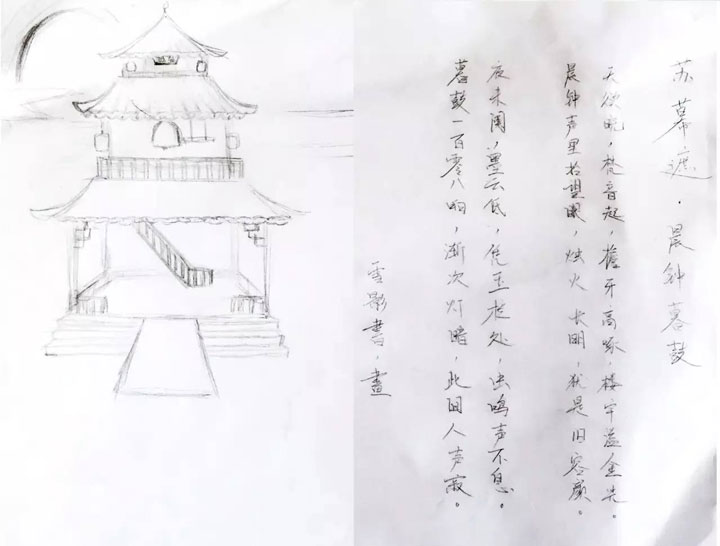 苏幕遮·晨钟暮鼓
天欲晓，梵音起，檐牙高啄，楼宇溢金光。
晨钟声里若望眼，烛火长明，犹是旧容颜。
夜未阑，墨云低，凭玉栏处，虫鸣声不息。
暮鼓一百零八响，渐次灯暗，此间人声寂。
雪影書，畫